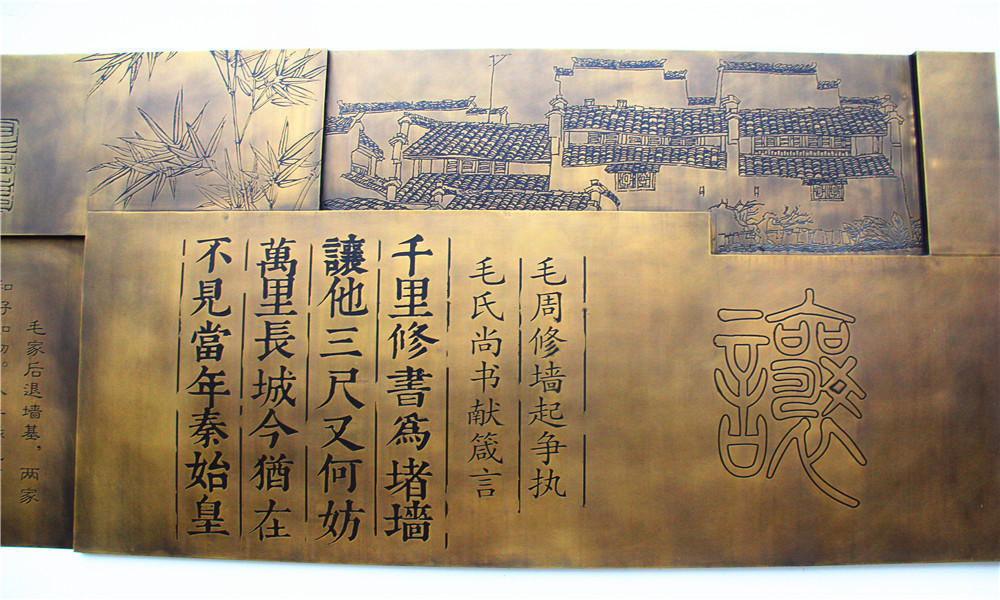 讓
毛周修墙起争执
毛氏尚书献箴言
千里修書爲堵墙
讓他三尺又何妨
萬里長城今猶在
不見當年秦始皇
毛家后退墙基，两家